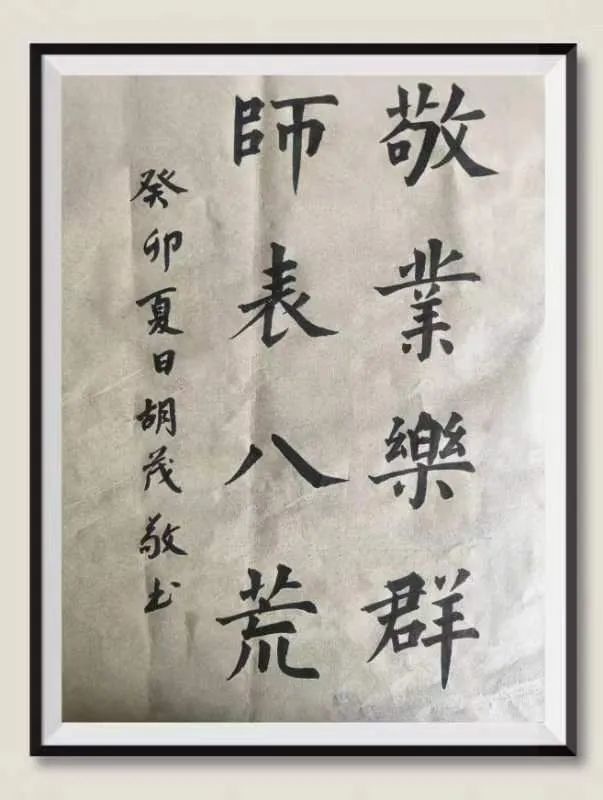 敬業樂群
師表八荒
癸卯夏日胡茂敬书